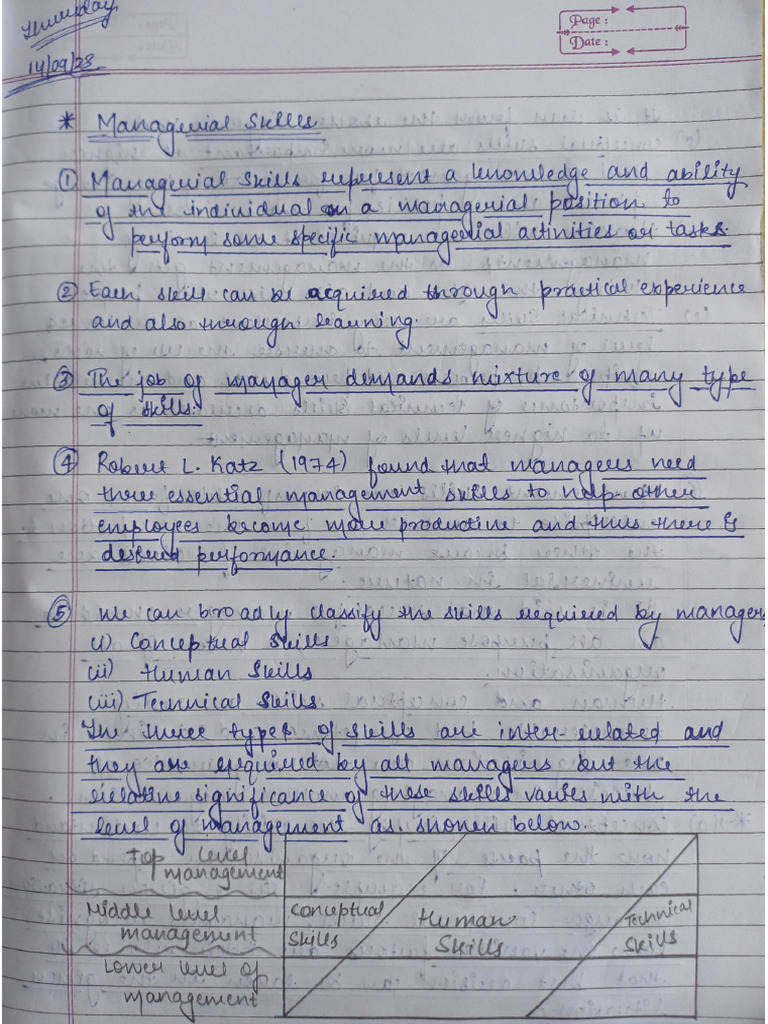 Thursday
14/09/23
Page :
Date :
* Managerial Skills
① Managerial skills represent a knowledge and ability
of the individual in a managerial position to
perform some specific managerial activities or tasks.
② Each skill can be acquired through practical experience
and also through learning.
③ The job of manager demands mixture of many type
of skills.
④ Robert L. Katz (1974) found that managers need
three essential management skills to help other
employees become more productive and thus there is
desired performance.
⑤ We can broadly classify the skills required by manager
(i) Conceptual Skills
(ii) Human Skills
(iii) Technical Skills.
The three types of skills are inter-related and
they are required by all managers but the
relative significance of these skills varies with the
level of management as shown below.
Top level
management
Middle level
management
Conceptual
Skills
Human
Skills
Technical
Skills
Lower level of
management